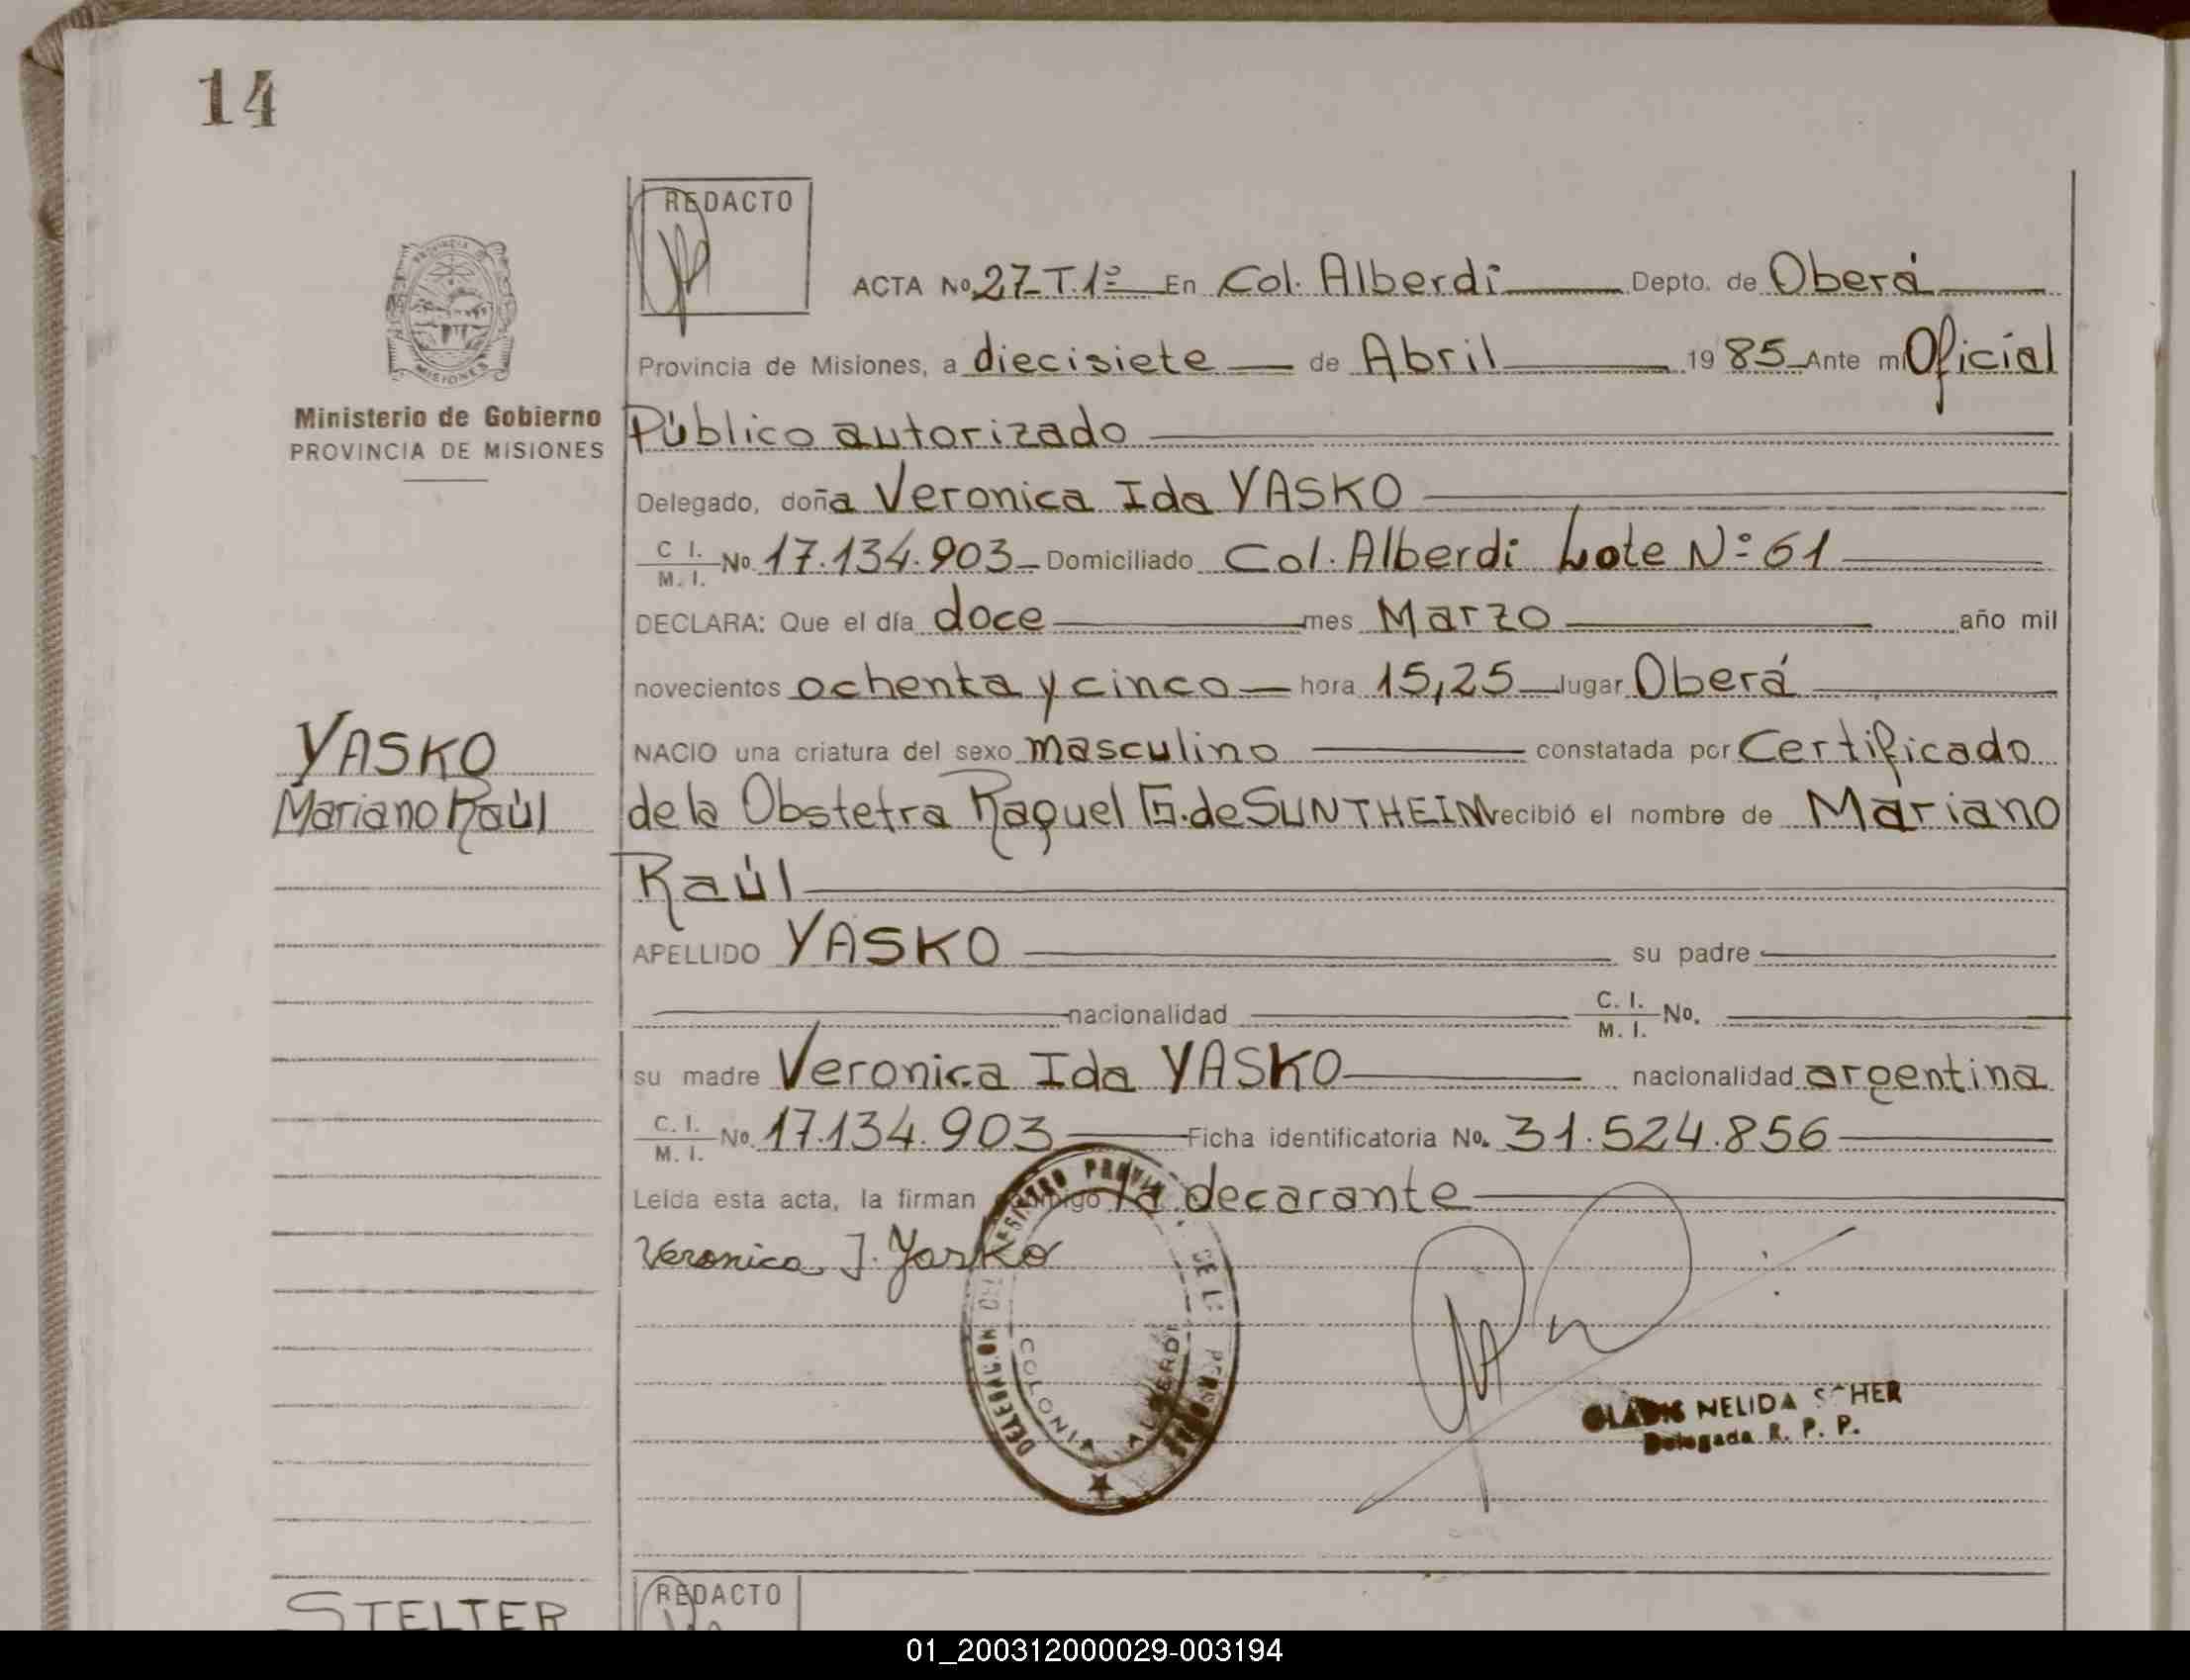 14
REDACTO
ACTA No 27-T.1º En Col. Alberdi Depto. de Oberá
Provincia de Misiones, a diecisiete de Abril 1985 Ante mi Oficial
Ministerio de Gobierno
PROVINCIA DE MISIONES
Público autorizado
Delegado, doña Veronica Ida YASKO
C I. M. I. No 17.134.903 Domiciliado Col. Alberdi Lote Nº 61
DECLARA: Que el día doce mes Marzo año mil
novecientos ochenta y cinco hora 15,25 lugar Oberá
NACIO una criatura del sexo masculino constatada por Certificado
YASKO
Mariano Raúl
de la Obstetra Raquel G. de SUNTHEIM recibió el nombre de Mariano
Raúl
APELLIDO YASKO su padre
nacionalidad C. I. M. I. No.
su madre Veronica Ida YASKO nacionalidad argentina
C. I. M. I. No 17.134.903 Ficha identificatoria No. 31.524.856
Leída esta acta, la firman la decarante
Veronica I. Yasko
COLONIA ALBERDI
GLADIS NELIDA
Delegada R. P. P.
STELTER
REDACTO
01_200312000029-003194